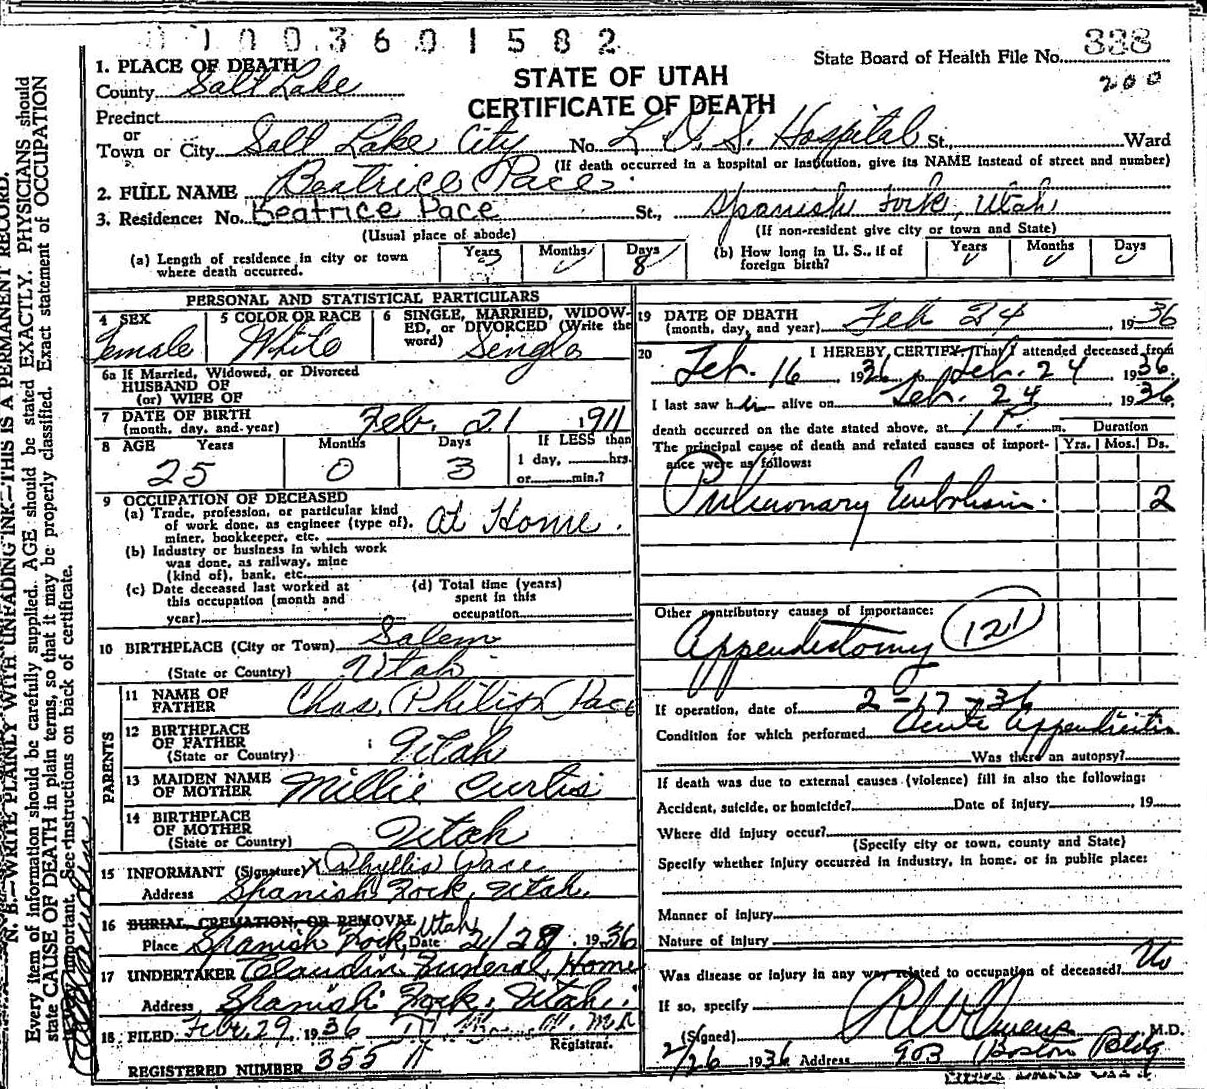 01003601582
State Board of Health File No. 338
200
STATE OF UTAH
CERTIFICATE OF DEATH
1. PLACE OF DEATH
County Salt Lake
Precinct
or
Town or City Salt Lake City No. L. D. S. Hospital St., Ward
(If death occurred in a hospital or institution, give its NAME instead of street and number)
2. FULL NAME Beatrice Pace
3. Residence: No. Beatrice Pace St., Spanish Fork, Utah
(Usual place of abode) (If non-resident give city or town and State)
(a) Length of residence in city or town where death occurred. Years Months Days 8 (b) How long in U. S., if of foreign birth? Years Months Days
PERSONAL AND STATISTICAL PARTICULARS
4 SEX Female
5 COLOR OR RACE White
6 SINGLE, MARRIED, WIDOWED, or DIVORCED (Write the word) Single
6a If Married, Widowed, or Divorced
HUSBAND OF
(or) WIFE OF
7 DATE OF BIRTH
(month, day, and year) Feb. 21 1911
8 AGE Years 25 Months 0 Days 3 If LESS than 1 day, hrs. or min.?
9 OCCUPATION OF DECEASED
(a) Trade, profession, or particular kind of work done, as engineer (type of), miner, bookkeeper, etc. At Home.
(b) Industry or business in which work was done, as railway, mine (kind of), bank, etc.
(c) Date deceased last worked at this occupation (month and year)
(d) Total time (years) spent in this occupation
10 BIRTHPLACE (City or Town) Salem
(State or Country) Utah
PARENTS
11 NAME OF FATHER Chas. Philip Pace
12 BIRTHPLACE OF FATHER (State or Country) Utah
13 MAIDEN NAME OF MOTHER Millie Curtis
14 BIRTHPLACE OF MOTHER (State or Country) Utah
15 INFORMANT (Signature) X Phyllis Pace
Address Spanish Fork, Utah.
16 BURIAL, CREMATION, OR REMOVAL Utah
Place Spanish Fork, Date 2/28 1936
17 UNDERTAKER Claudin Funeral Home
Address Spanish Fork, Utah.
18 FILED Feb. 29, 1936
Registrar.
REGISTERED NUMBER 355 A
19 DATE OF DEATH
(month, day, and year) Feb 24, 1936
20 I HEREBY CERTIFY, That I attended deceased from
Feb. 16 1936 to Feb. 24 1936
I last saw her alive on Feb. 24 1936
death occurred on the date stated above, at 1 P. m. Duration
The principal cause of death and related causes of importance were as follows: Yrs. Mos. Ds.
Pulmonary Embolism. 2
Other contributory causes of importance:
Appendectomy 121
If operation, date of 2-17-36
Condition for which performed Acute Appendicitis
Was there an autopsy?
If death was due to external causes (violence) fill in also the following:
Accident, suicide, or homicide? Date of Injury , 19
Where did injury occur?
(Specify city or town, county and State)
Specify whether injury occurred in industry, in home, or in public place:
Manner of Injury
Nature of Injury
Was disease or injury in any way related to occupation of deceased? No
If so, specify
(Signed) R W Owens M.D.
2/26 1936 Address 903 Boston Bldg
N. B.—WRITE PLAINLY WITH UNFADING INK—THIS IS A PERMANENT RECORD.
Every item of information should be carefully supplied. AGE should be stated EXACTLY. PHYSICIANS should
state CAUSE OF DEATH in plain terms, so that it may be properly classified. Exact statement of OCCUPATION
important. See instructions on back of certificate.